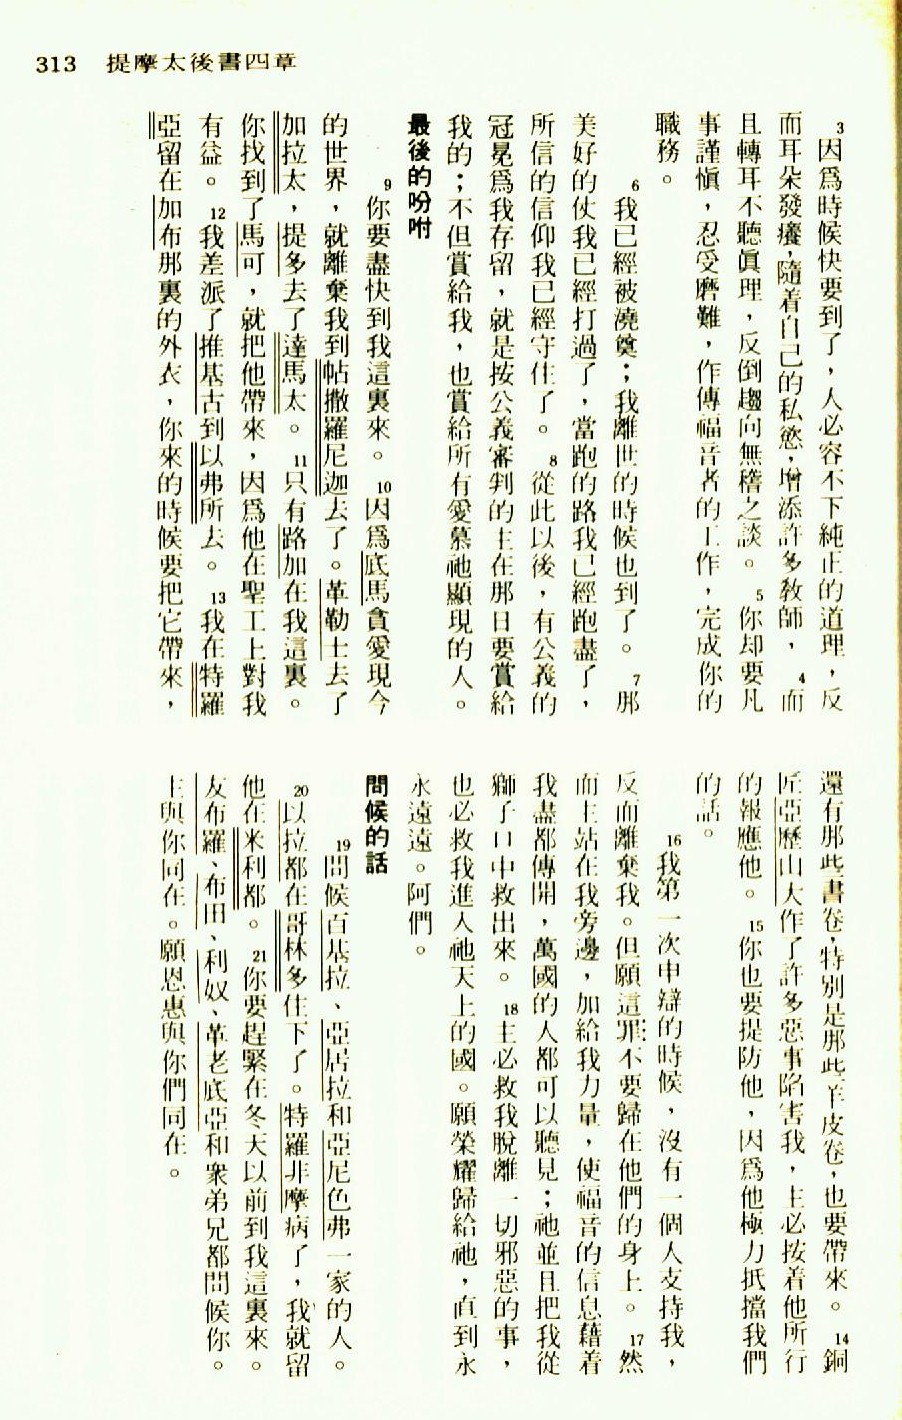 313 提摩太後書四章
3因爲時候快要到了，人必容不下純正的道理，反
而耳朵發癢，隨着自己的私慾，增添許多教師，4而
且轉耳不聽眞理，反倒趨向無稽之談。5你却要凡
事謹愼，忍受磨難，作傳福音者的工作，完成你的
職務。
6我已經被澆奠；我離世的時候也到了。7那
美好的仗我已經打過了，當跑的路我已經跑盡了，
所信的信仰我已經守住了。8從此以後，有公義的
冠冕爲我存留，就是按公義審判的主在那日要賞給
我的；不但賞給我，也賞給所有愛慕祂顯現的人。
最後的吩咐
9你要盡快到我這裏來。10因爲底馬貪愛現今
的世界，就離棄我到帖撒羅尼迦去了。革勒士去了
加拉太，提多去了達馬太。11只有路加在我這裏。
你找到了馬可，就把他帶來，因爲他在聖工上對我
有益。12我差派了推基古到以弗所去。13我在特羅
亞留在加布那裏的外衣，你來的時候要把它帶來，
還有那些書卷，特別是那些羊皮卷，也要帶來。14銅
匠亞歷山大作了許多惡事陷害我，主必按着他所行
的報應他。15你也要提防他，因爲他極力抵擋我們
的話。
16我第一次申辯的時候，沒有一個人支持我，
反而離棄我。但願這罪不要歸在他們的身上。17然
而主站在我旁邊，加給我力量，使福音的信息藉着
我盡都傳開，萬國的人都可以聽見；祂並且把我從
獅子口中救出來。18主必救我脫離一切邪惡的事，
也必救我進入祂天上的國。願榮耀歸給祂，直到永
永遠遠。阿們。
問候的話
19問候百基拉、亞居拉和亞尼色弗一家的人。
20以拉都在哥林多住下了。特羅非摩病了，我就留
他在米利都。21你要趕緊在冬天以前到我這裏來。
友布羅、布田、利奴、革老底亞和衆弟兄都問候你。
主與你同在。願恩惠與你們同在。